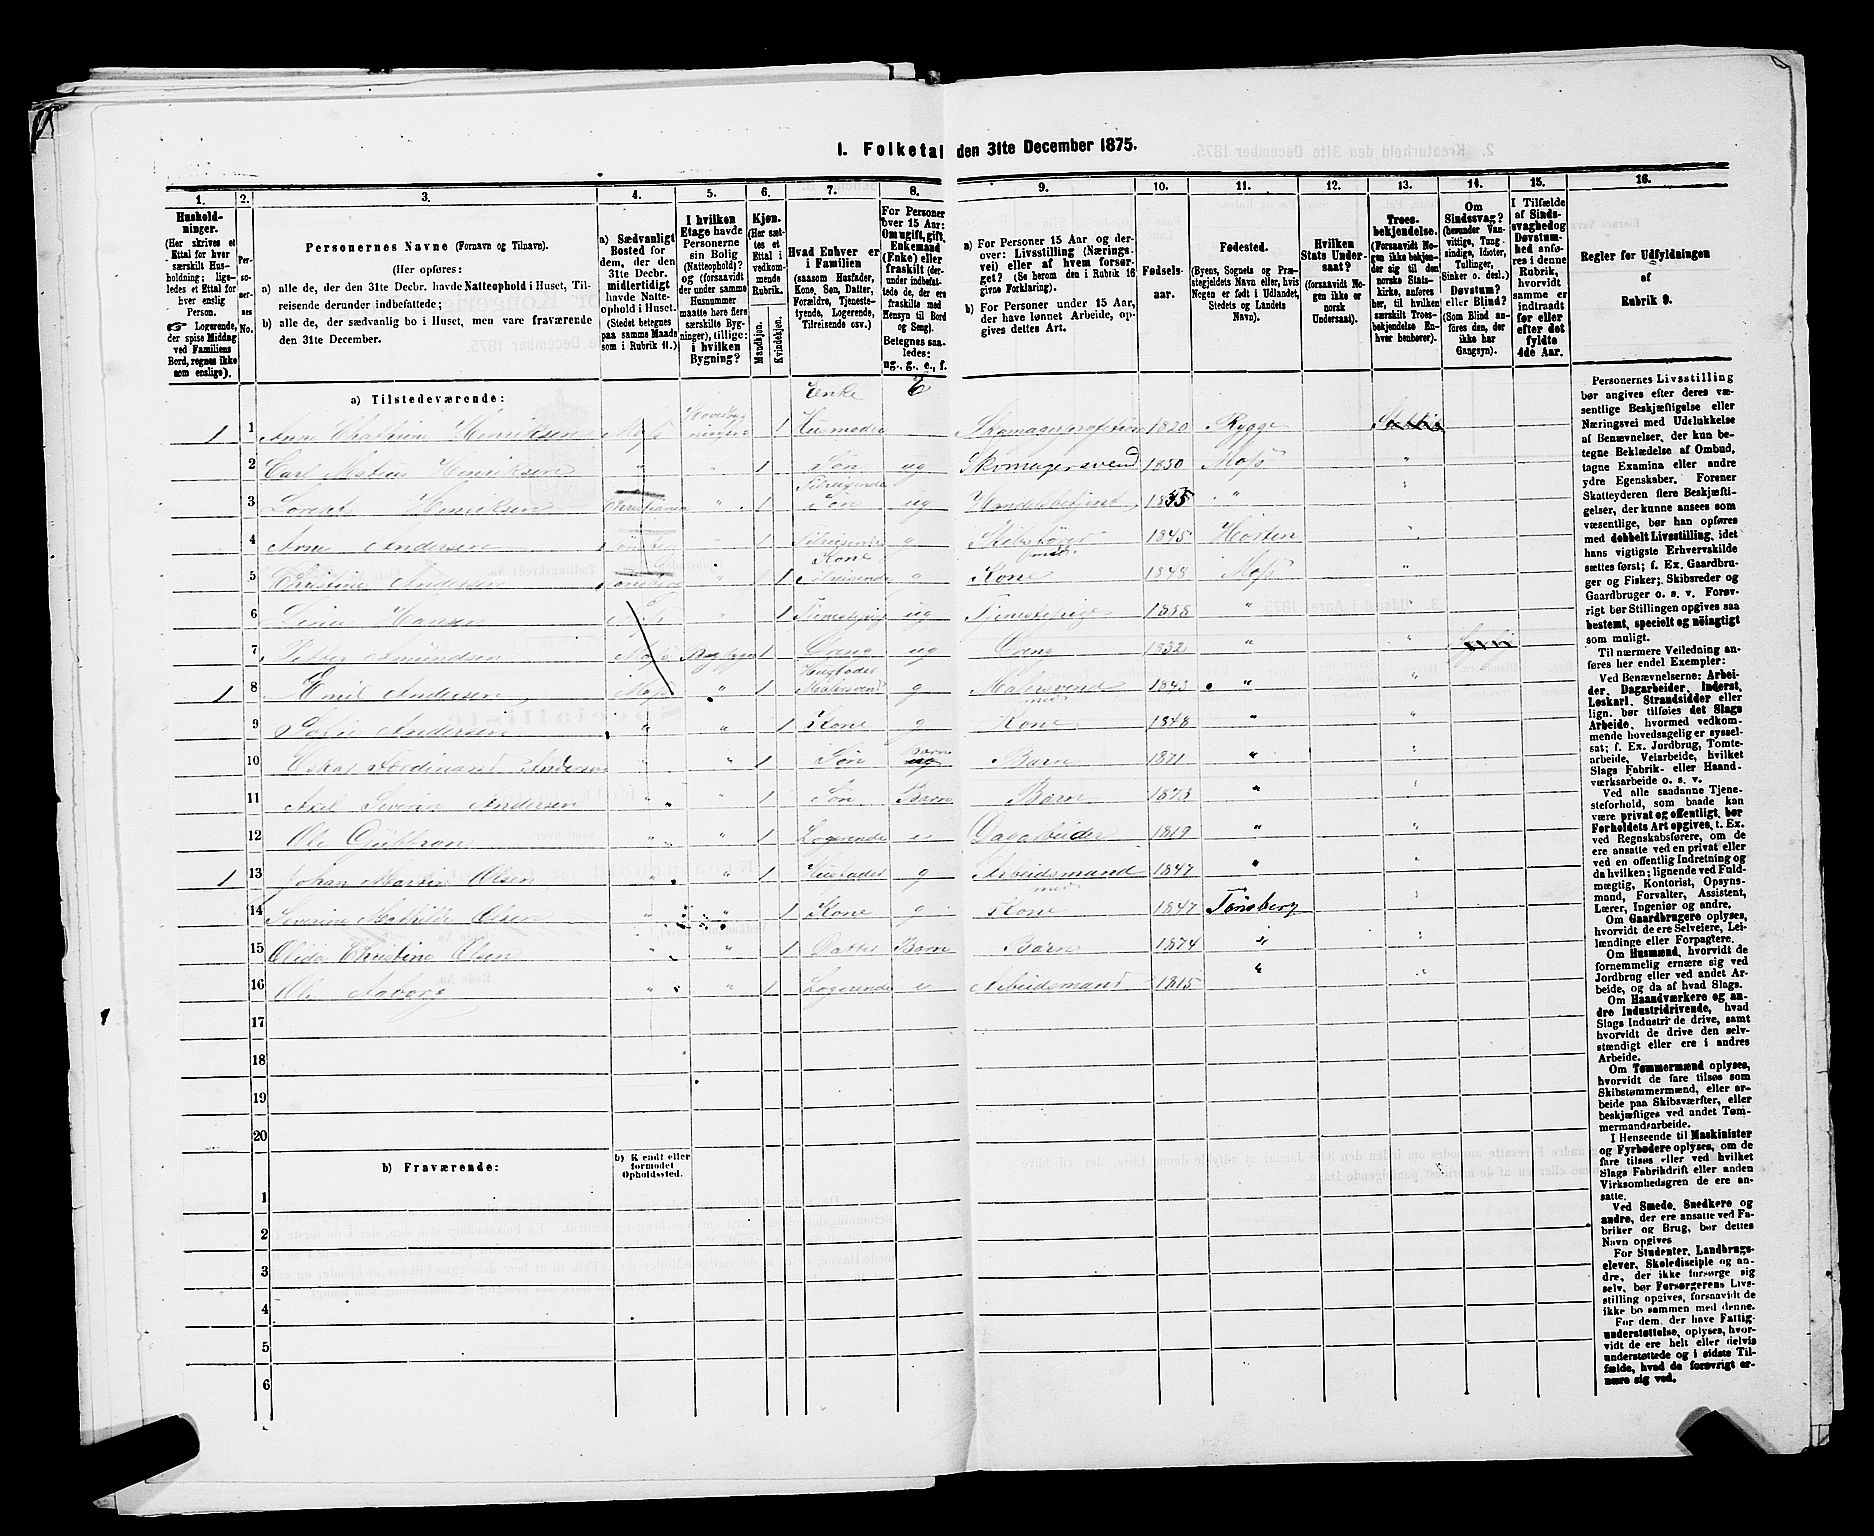 1. Folketal den 31te December 1875.
1. 2. 3. 4. 5. 6. 7. 8. 9. 10. 11. 12. 13. 14. 15. 16.
Hushold-
ninger.
(Her skrives et
Ettal for hver
særskilt Hus-
holdning; lige-
ledes et Ettal for
hver enslig
Person.
☞ Logerende,
der spise Middag
ved Familiens
Bord, regnes ikke
som enslige).
Per-
so-
ner-
nes
No.
Personernes Navne (Fornavn og Tilnavn).
(Her opføres:
a) alle de, der den 31te Decbr. havde Natteophold i Huset, Til-
reisende derunder indbefattede;
b) alle de, der sædvanlig bo i Huset, men vare fraværende
den 31te December.
a) Sædvanligt
Bosted for
dem, der den
31te Decbr.
midlertidigt
havde Natte-
ophold i Huset.
(Stedet betegnes
paa samme Maade
som i Rubrik 11.)
I hvilken
Etage havde
Personerne
sin Bolig
(Natteophold)?
og (forsaavidt
der under samme
Husnummer
maatte høre flere
særskilte Byg-
ninger), tillige:
i hvilken
Bygning?
Kjøn.
(Her sæt-
tes et
Ettal i
vedkom-
mende
Rubrik.
Mandkjøn.
Kvindekjøn.
Hvad Enhver er
i Familien
(saasom Husfader,
Kone, Søn, Datter,
Forældre, Tjeneste-
tyende, Logerende,
Tilreisende osv.)
For Personer
over 15 Aar:
Om ugift, gift,
Enkemand
(Enke) eller
fraskilt (der-
under indbefat-
tede de, der ere
fraskilte med
Hensyn til Bord
og Seng).
Betegnes saa-
ledes:
ug., g., e., f.
a) For Personer 15 Aar og der-
over: Livsstilling (Nærings-
vei) eller af hvem forsør-
get? (Se herom den i Rubrik 16
givne Forklaring).
b) For Personer under 15 Aar,
der have lønnet Arbeide, op-
gives dettes Art.
Fødsels-
aar.
Fødested.
(Byens, Sognets og Præ-
stegjeldets Navn eller, hvis
Nogen er født i Udlandet,
Stedets og Landets
Navn).
Hvilken
Stats Under-
saat?
(forsaavidt No-
gen ikke er
norsk
Undersaat).
Troes-
bekjendelse.
(Forsaavidt No-
gen ikke bekjen-
der sig til den
norske Stats-
kirke, anføres
her, til hvilken
særskilt Troes-
bekjendelse En-
hver henhører).
Om
Sindssvag?
(herunder Van-
vittige, Tung-
sindige, Idioter,
Tullinger,
Sinker o. desl.)
Døvstum?
eller Blind?
(Som Blind an-
føres den, der
ikke har
Gangsyn).
I Tilfælde
af Sinds-
svaghed og
Døvstum-
hed anfø-
res i denne
Rubrik,
hvorvidt
samme er
indtraadt
før eller
efter det
fyldte
4de Aar.
Regler for Udfyldningen
af
Rubrik 9.
a) Tilstedeværende:
Enke E
1 1 Anne Chathrine Henriksen Moss 1 Husmoder 1820 Rygge
2 Carl Henriksen " " 1 Søn ug Skomagersvend 1850 Moss "
Tilreisende
3 Henriksen Christiania " 1 Søn ug "
4 Andersen " 1 Tilreisende " 1845 Horten "
Kone
5 Christine Andersen " 1 Tilreisende " Kone 1848 Moss "
6 Hansen " 1 ug 1858 "
7 Petter Amundsen Moss 1 ug 1832 " "
Husfader
1 8 Emil Andersen Moss " 1 Malersvend g Malersvend 1843 " "
9 Sofie Andersen " " 1 Kone g Kone 1848 " "
10 Oskar Ferdinand Andersen " " 1 Søn Barn Barn 1871 " "
11 Axel Severin Andersen " " 1 Søn Barn Barn 1873 " "
12 Ole " " 1 Logerende e Dagarbeider 1819 " "
1 13 Johan Martin Olsen " " 1 Husfader g Arbeidsmand 1847 " "
14 Severine Mathilde Olsen " " 1 Kone g Kone 1847 Tønsberg "
15 Olida Christine Olsen " " 1 Datter Barn Barn 1874 " "
16 Ole " " 1 Logerende e Arbeidsmand 1815 " "
17
18
19
20
b) Fraværende: b) Kjendt eller
formodet
Opholdssted.
1
2
3
4
5
6
Personernes Livsstilling
bør angives efter deres væ-
sentlige Beskjæftigelse eller
Næringsvei med Udelukkelse
af Benævnelser, der kun be-
tegne Beklædelse af Ombud,
tagne Examina eller andre
ydre Egenskaber. Forener
Skatteyderen flere Beskjæfti-
gelser, der kunne ansees som
væsentlige, bør han opføres
med dobbelt Livsstilling, idet
hans vigtigste Erhvervskilde
sættes først; f. Ex. Gaardbru-
ger og Fisker; Skibsreder og
Gaardbruger o. s. v. Forøv-
rigt bør Stillingen opgives saa
bestemt, specielt og nöiagtigt
som muligt.
Til nærmere Veiledning an-
føres her endel Exempler:
Ved Benævnelserne: Arbei-
der, Dagarbeider, Inderst,
Løskarl, Strandsidder eller
lign. bør tilføies det Slags
Arbeide, hvormed vedkom-
mende hovedsagelig er syssel-
sat; f. Ex. Jordbrug, Tomte-
arbeide, Veiarbeide, hvilket
Slags Fabrik- eller Haand-
værksarbeide o. s. v.
Ved alle saadanne Tjene-
steforhold, som baade kan
være privat og offentligt, bør
Forholdets Art opgives, f. Ex.
ved Regnskabsførere, om de
ere ansatte ved en privat eller
ved en offentlig Indretning og
da hvilken; lignende ved Fuld-
mægtig, Kontorist, Opsyns-
mand, Forvalter, Assistent,
Lærer, Ingeniør og andre.
Om Gaardbrugere oplyses,
hvorvidt de ere Selveiere, Lei-
lændinge eller Forpagtere.
Om Husmænd, hvorvidt de
fornemmelig ernære sig ved
Jordbrug eller ved andet Ar-
beide, og da af hvad Slags.
Om Haandværkere og an-
dre Industridrivende, hvad
Slags Industri de drive, samt
hvorvidt de drive den selv-
stændigt eller ere i andres
Arbeide.
Om Tømmermænd oplyses,
hvorvidt de fare tilsøs som
Skibstømmermænd, eller ar-
beide paa Skibsværfter, eller
beskjæftiges ved andet Tøm-
mermandsarbeide.
I Henseende til Maskinister
og Fyrbødere oplyses, om de
fare tilsøs eller ved hvilket
Slags Fabrikdrift eller anden
Virksomhedsgren de ere an-
satte.
Ved Smede, Snedkere og
andre, der ere ansatte ved Fa-
briker og Brug, bør dettes
Navn opgives
For Studenter, Landbrugs-
elever, Skoledisciple og an-
dre, der ikke forsørge sig
selv, bør Forsørgerens Livs-
stilling opgives, forsaavidt de
ikke bo sammen med denne.
For dem, der have Fattig-
understøttelse, oplyses, hvor-
vidt de ere helt eller delvis
understøttede og i sidste Til-
fælde, hvad de forøvrigt er-
nære sig ved.